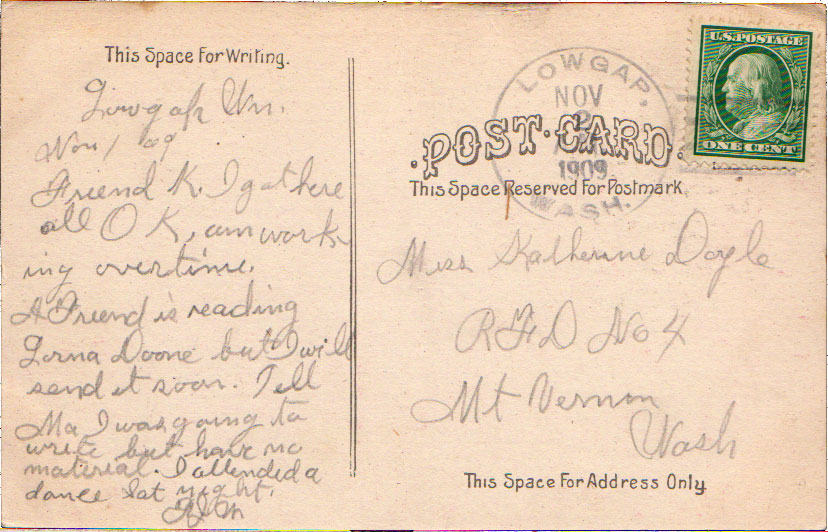 This Space For Writing.
Lowgap Wn.
Nov 1 09
Friend K. I got here
all O K, am work-
ing overtime.
A Friend is reading
Lorna Doone but I will
send it soon. Tell
Ma I was going to
write but have no
material. I attended a
dance Sat night.
LOWGAP,
NOV
2
1909
WASH.
U.S. POSTAGE
ONE CENT
POST CARD.
This Space Reserved For Postmark
Miss Katherine Doyle
RFD No 4
Mt Vernon
Wash
This Space For Address Only